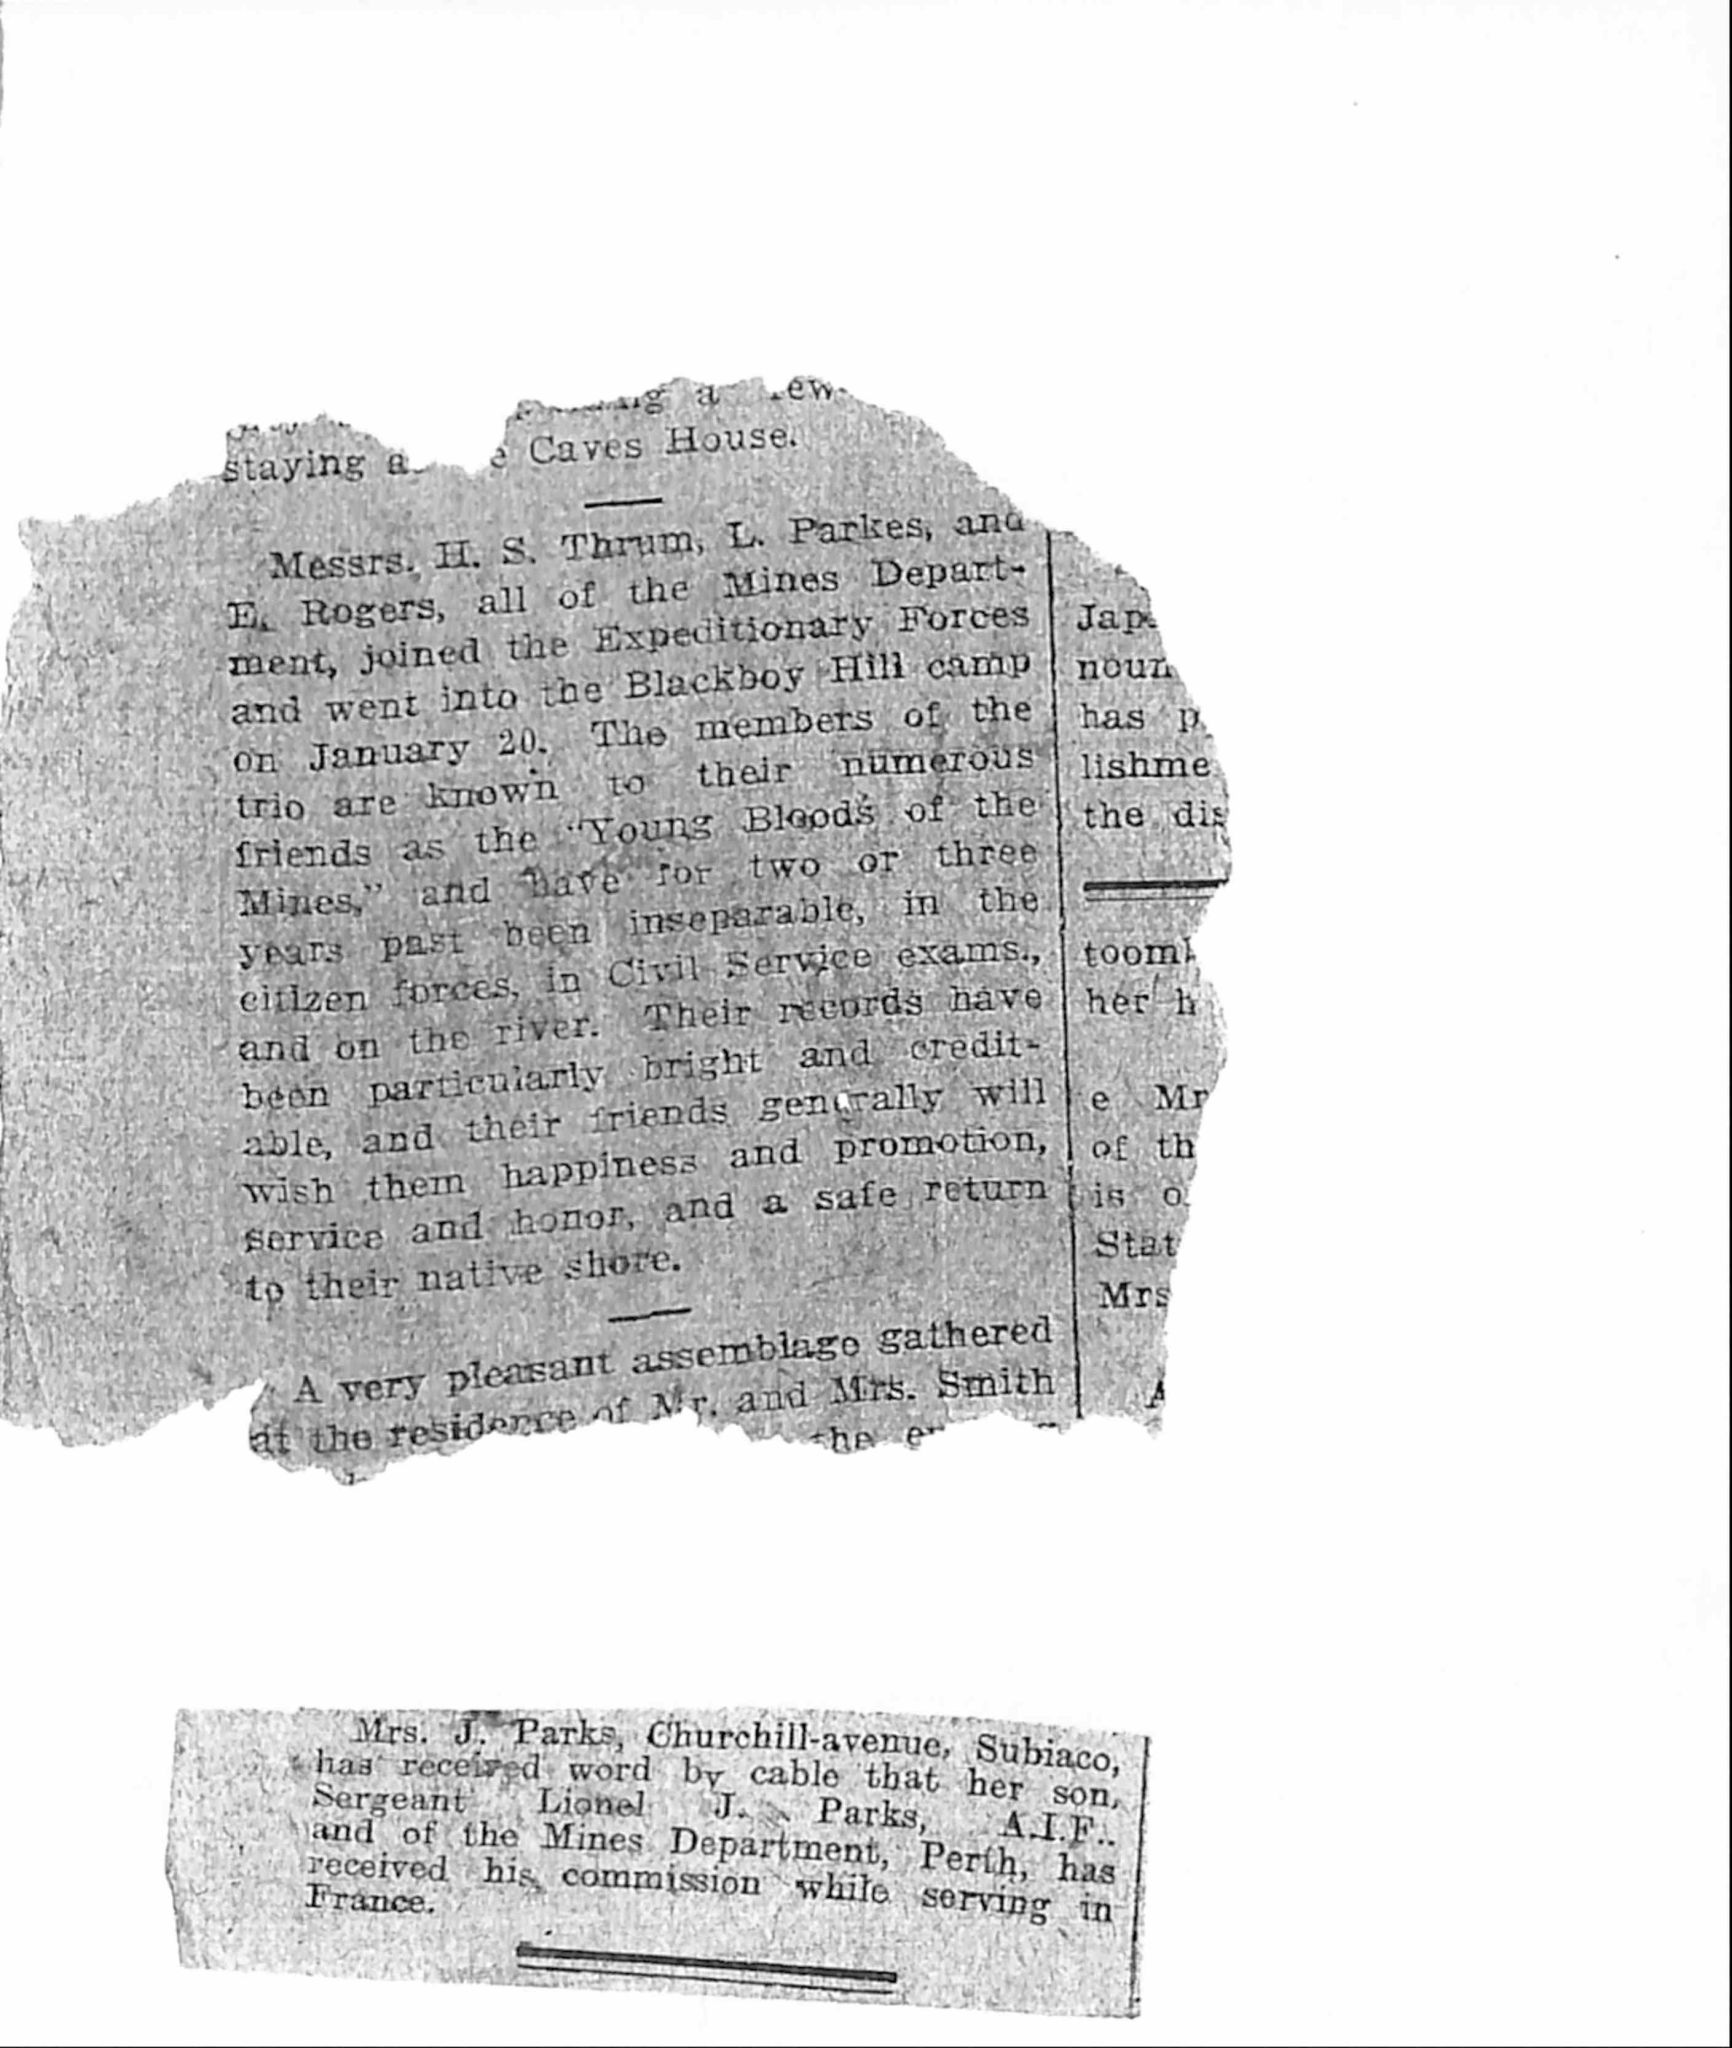 staying a e Caves House.
Messrs. H. S. Thrum, L. Parkes, and
E. Rogers, all of the Mines Depart-
ment, joined the Expeditionary Forces
and went into the Blackboy Hill camp
on January 20. The members of the
trio are known to their numerous
friends as the "Young Bloods of the
Mines," and have for two or three
years past been inseparable, in the
citizen forces, in Civil Service exams.,
and on the river. Their records have
been particularly bright and credit-
able, and their friends generally will
wish them happiness and promotion,
service and honor, and a safe return
to their native shore.
A very pleasant assemblage gathered
at the residence of Mr. and Mrs. Smith
the
Jap
noun
has p
lishme
the dis
toom
her h
e Mr
of th
is o
Stat
Mrs
A
Mrs. J. Parks, Churchill-avenue, Subiaco,
has received word by cable that her son,
Sergeant Lionel J. Parks, A.I.F.,
and of the Mines Department, Perth, has
received his commission while serving in
France.